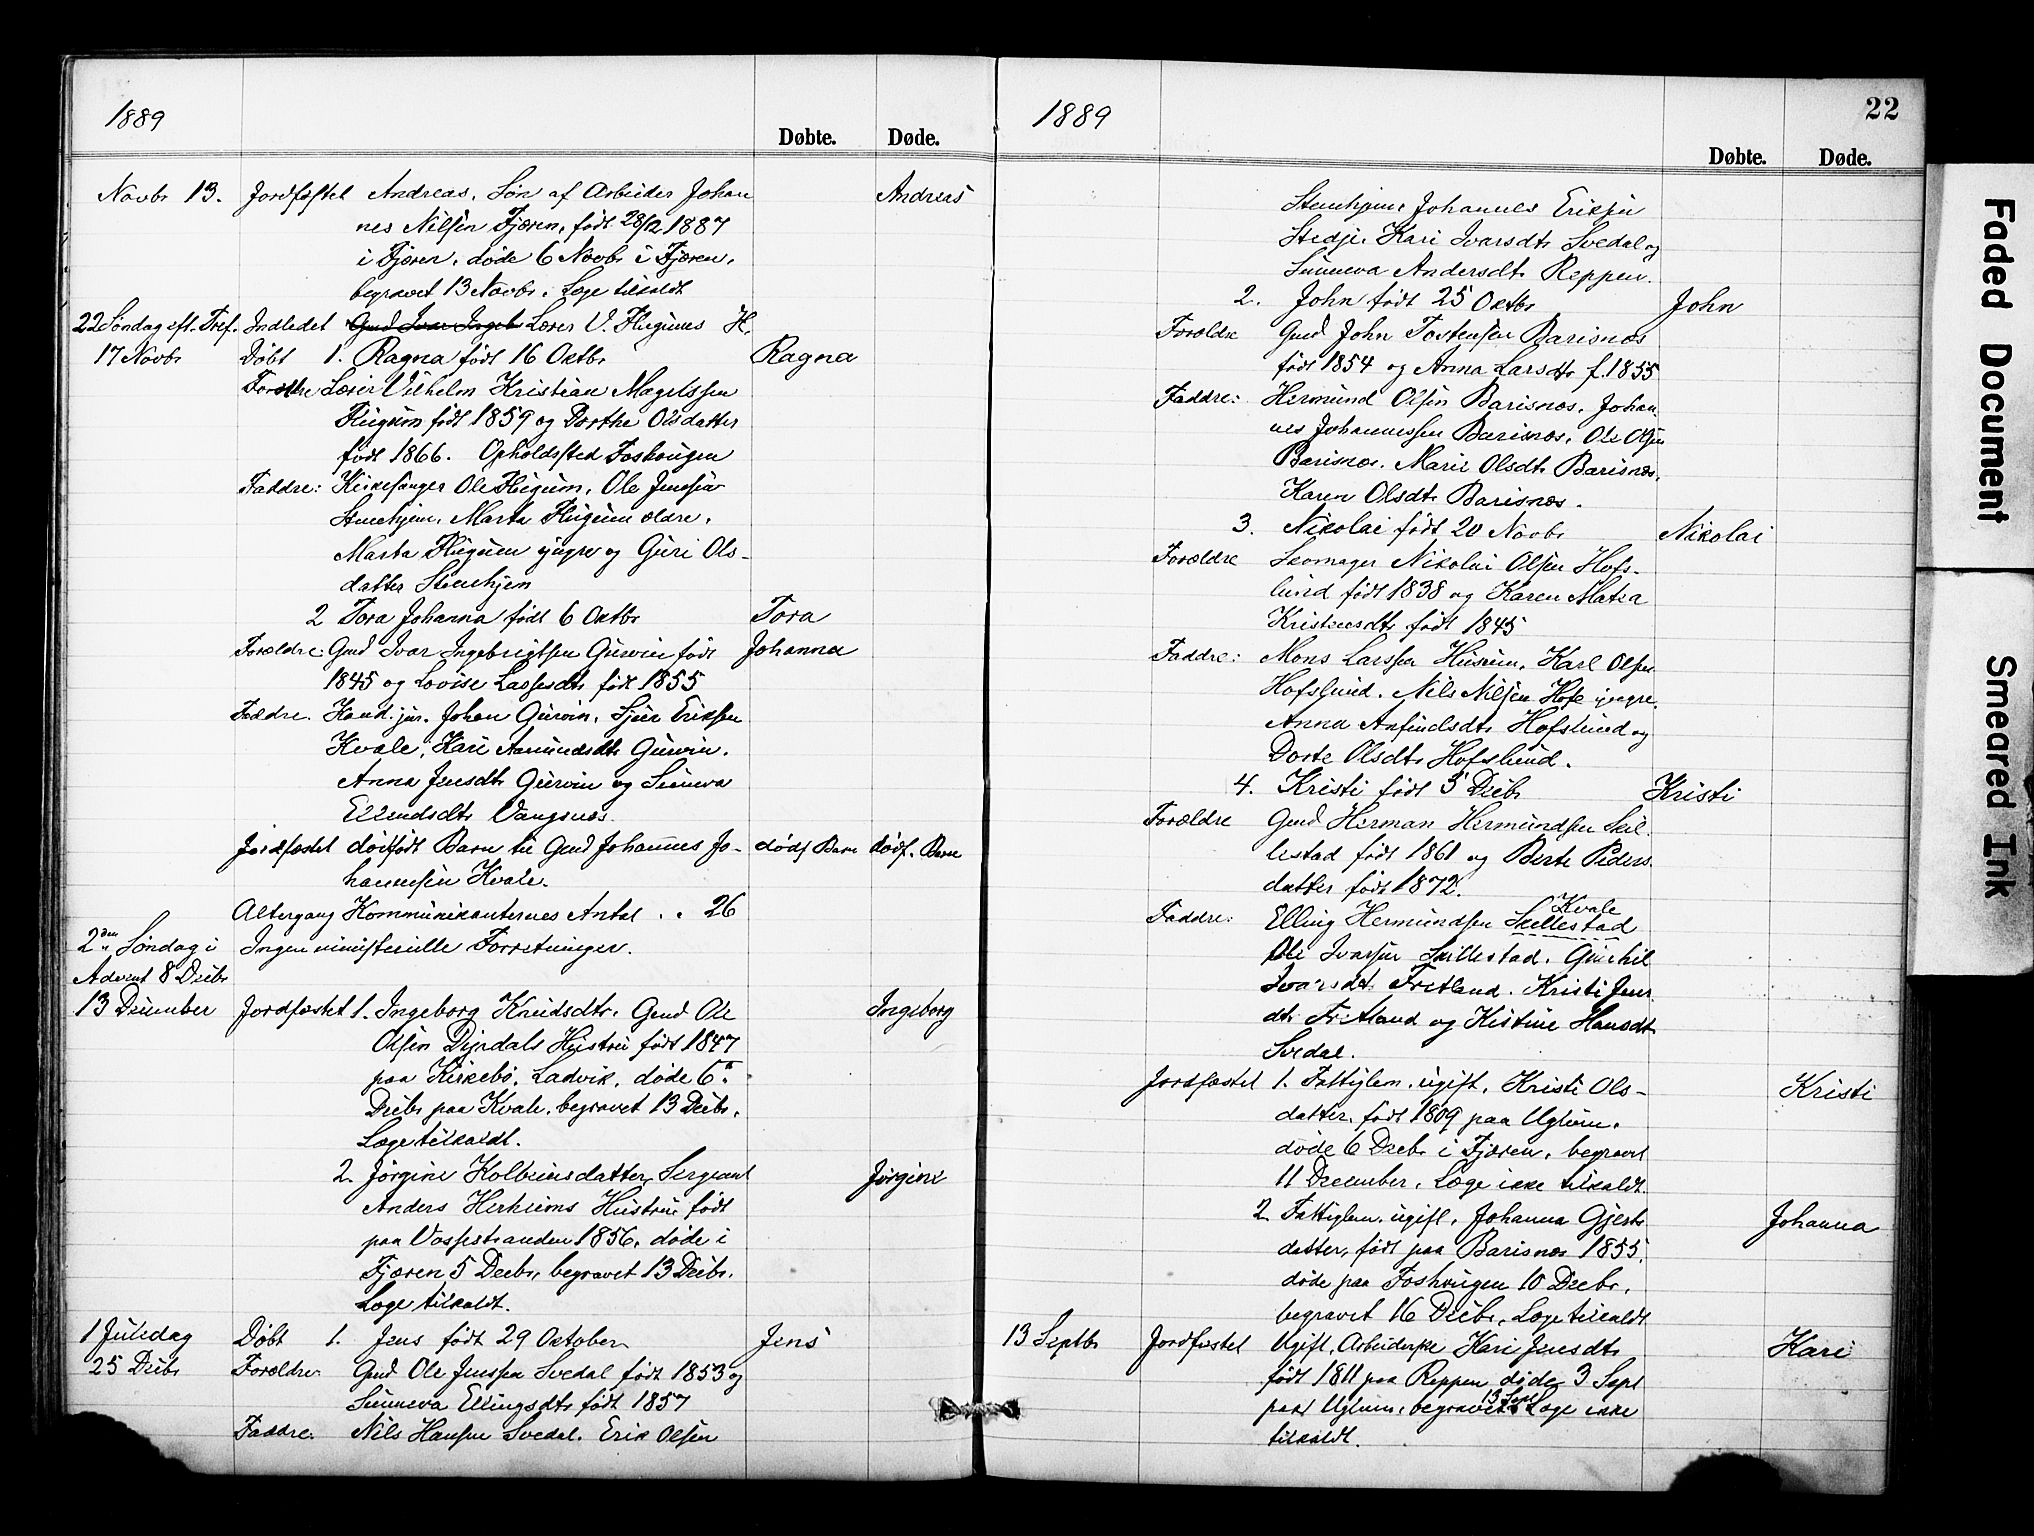 1889
Døbte. Døde.
Novbr 13. Jordfæstet Andreas, Søn af Arbeider Johan Andreas
nes Nilsen Fjæren, født 28/2 1887
i Fjæren, døde 6 Novbr i Fjæren,
begravet 13 Novbr. Læge tilkaldt
22 Søndag eft. Tref. Indledet Gmd Ivar Ingeb Lærer V. Flugums H.
17 Novbr Døbt 1. Ragna født 16 Oktbr Ragna
Lærer Vilhelm Kristian Magelssen
Flugum født 1859 og Dorthe Olsdatter
født 1866. Opholdssted Foshaugen
Faddre: Kirkesanger Ole Flugum, Ole Jenssen
Stenehjem, Marta Flugum ældre,
Marta Flugum yngre og Guri Ols-
datter Stenehjem
2 Tora Johanna født 6 Oktbr Tora
Forældre: Gmd Ivar Ingebrigtsen Gurvin født Johanna
1845 og Lovise Lassesdtr født 1855
Faddre. Kand. jur. Johan Gurvin, Sjur Eriksen
Kvale, Kari Aamundsdtr Gurvin,
Anna Jensdtr Gurvin og Sunneva
Ellendsdtr Vangsnes.
Jordfæstet dødfødt Barn til Gmd Johannes Jo- dødf Barn dødf. Barn
hannesen Kvale.
Altergang Kommunikanternes Antal . . 26
2den Søndag i Ingen ministerielle Forretninger.
Advent 8 Decbr
13 December Jordfæstet 1. Ingeborg Knudsdtr. Gmd Ole Ingeborg
Olsen Dyrdals Hustru født 1847
paa Kirkebø, Ladvik, døde 6te
Decbr paa Kvale, begravet 13 Decbr.
Læge tilkaldt.
2. Jørgine Kolbeinsdatter, Sergeant Jørgine
Anders Herheims Hustru født
paa Vossestranden 1856, døde i
Fjæren 5 Decbr, begravet 13 Decbr.
Læge tilkaldt.
1 Juledag Døbt 1. Jens født 29 October Jens
25 Decbr Forældre Gmd Ole Jenssen Svedal født 1853 og
Sunneva Ellingsdtr født 1857
Faddre. Nils Hansen Svedal, Erik Olsen
1889 22
Døbte. Døde.
Stenehjem, Johannes Eriksen
Stedje, Kari Ivarsdtr Svedal og
Sunneva Andersdtr Reppen.
2. John født 25 Oktbr John
Forældre Gmd John Tostensen Barisnæs
født 1854 og Anna Larsdtr f. 1855
Faddre: Hermund Olsen Barisnæs, Johan-
nes Johannessen Barisnæs, Ole Olsen
Barisnæs. Marie Olsdtr Barisnæs,
Karen Olsdtr Barisnæs.
3. Nikolai født 20 Novbr Nikolai
Forældre Skomager Nikolai Olsen Hofs-
lund født 1838 og Karen Matea
Kristensdtr født 1845
Faddre: Mons Larssen Husum, Karl Olsen
Hofslund, Nils Nilsen Hofe yngre,
Anna Anfindsdtr Hofslund og
Dorte Olsdtr Hofslund.
4. Kristi født 5 Decbr Kristi
Forældre Gmd Herman Hermundsen Skil-
lestad født 1861 og Berte Peders
datter født 1872.
Kvale
Faddre: Elling Hermundsen Skillestad
Ole Ivarsen Skillestad, Gunhil
Ivarsdt. Fretland. Kristi Jens
dtr Fretland og Kistine Hansdt
Svedal.
Jordfæstet 1. Fattiglem, ugift, Kristi Ols- Kristi
datter, født 1809 paa Uglum,
døde 6 Decbr i Fjæren, begravet
11 December, Læge ikke tilkaldt.
2 Fattiglem, ugift, Johanna Gjerts Johanna
datter, født paa Barisnæs 1855,
døde paa Foshaugen 10 Decbr,
begravet 16 Decbr, Læge tilkaldt
13 Septbr Jordfæstet Ugift, Arbeiderske Kari Jensdtr Kari
født 1811 paa Reppen døde 3 Sept
paa Uglum, begravet 13 Sept Læge ikke
tilkaldt.
Faded Document
Smeared Ink